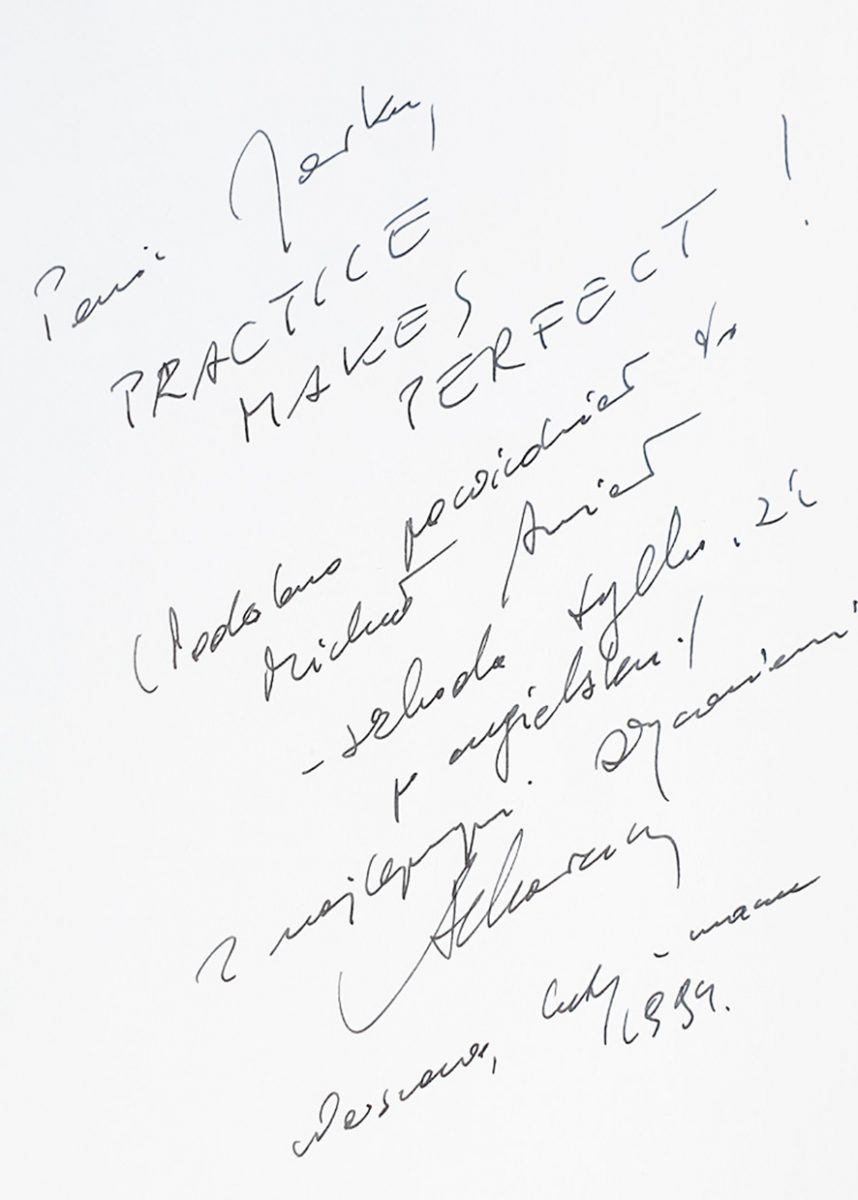 Panie Jarku,
PRACTICE
MAKES
PERFECT !
(Podobno powiedział to
Michał Anioł
- szkoda tylko, że
po angielsku./
Z najlepszymi życzeniami
Warszawa, luty - marzec
1994.